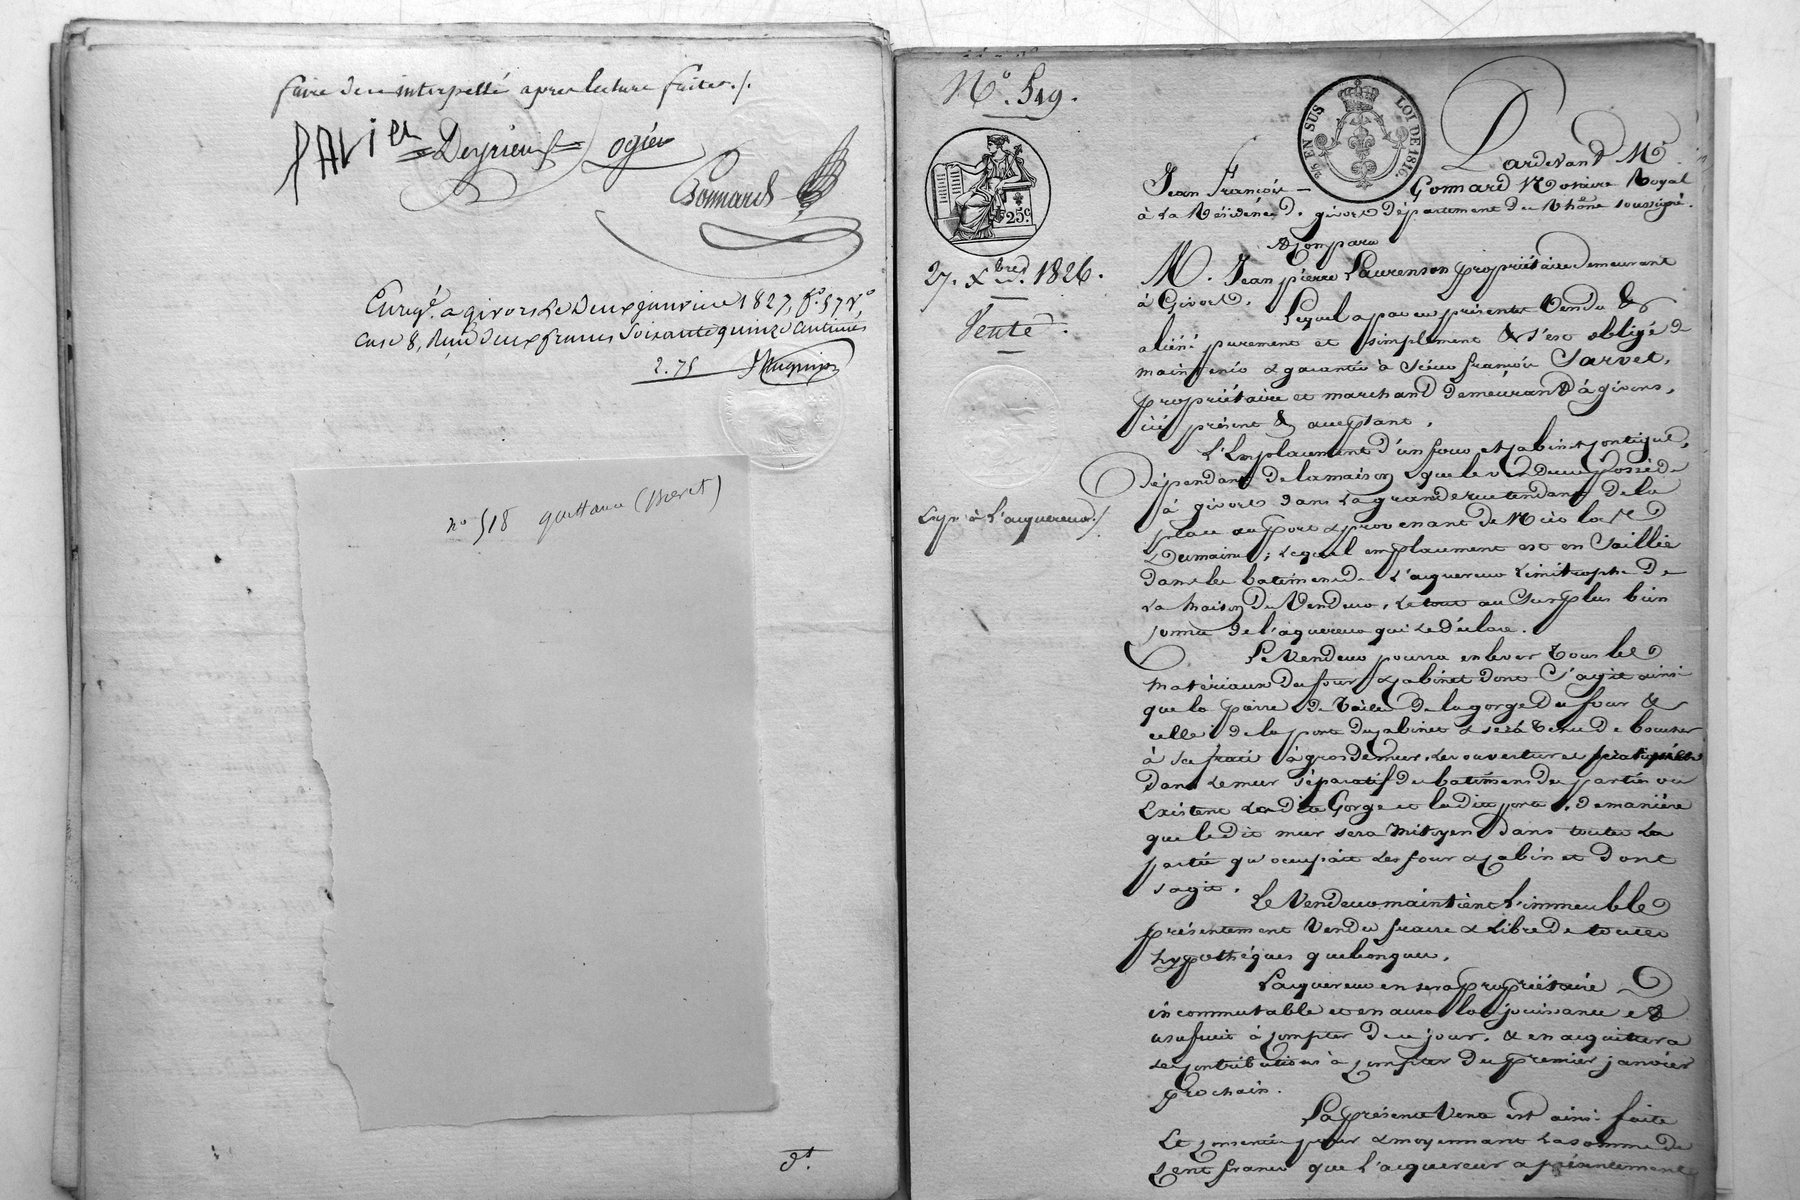 faire de ce interpellé après lecture faite./.
PAVier Deyrieux ogier
Gonnard
Enregé. a givors le deux janvier 1827, f°. 57 v°
case 8, Reçu deux francs Soixante quinze centimes
2.75
n° 518 quittance
N°. 519.
25 EN SUS LOI DE 1816.
25c
27. Xbre. 1826.
Vente.
Exp. à l'acquereur./.
Pardevant Me
Jean François Gonnard Notaire Royal
à La Résidence de givors département du Rhône soussigné.
A Comparu
M. Jean pierre Laurenson propriétaire demeurant
à Givors.
Lequel a par ces présentes Vendu &
aliéné purement et simplement & s'est obligé de
maintenir & garantir à Sieur françois Jarvet,
propriétaire et marchand demeurant à givors,
ici présent & acceptant,
L'Emplacement d'un four et cabinet contigus,
dépendant de la maison que le vendeur possède
à givors dans la grande rue tendant de la
place au port & provenant de
Dumaine; lequel emplacement est en Saillie
dans les batimens de L'acquereur Limitrophe de
La Maison du Vendeur, Le tout au Surplus bien
connu de l'acquereur qui Le déclare.
Le Vendeur pourra enlever tous les
matériaux du four & cabinet dont S'agit ainsi
que la pierre de taille de la gorge du four &
celle de la porte du cabinet & sera tenu de boucher
à ses frais à gros de mur, Les ouvertures pratiquées
Dans Le mur Séparatif des batimens des parties ou
Existent La dite Gorge et la dite porte, de manière
que le dit mur sera Mitoyen dans toute La
partie qu'occupait Les four & cabinet dont
s'agit.
Le Vendeur maintient L'immeuble
présentement Vendu franc & Libre de toutes
hypothéques quelconques.
L'acquereur en sera propriétaire
incommutable et en aura la jouissance et
usufruit à compter de ce jour, & en acquittera
Les contributions à compter du premier janvier
prochain.
La présente Vente est ainsi faite
Et consentie pour & moyennant La somme de
Cent francs que L'acquereur a présentement